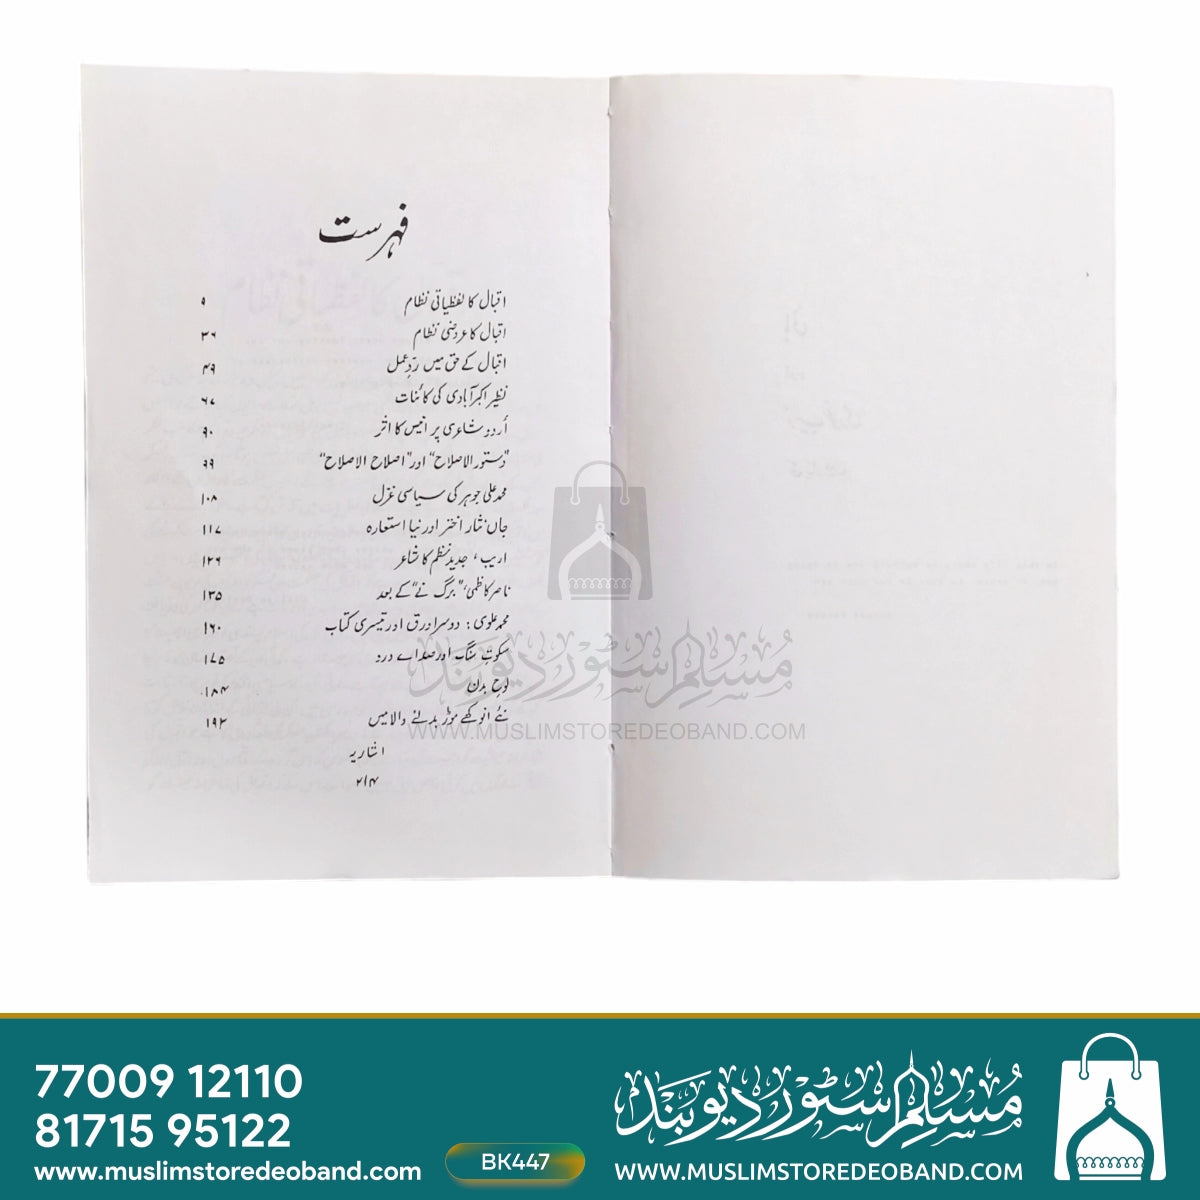 فہرست
اقبال کا لفظیاتی نظام ۹
اقبال کا عروضی نظام ۳۶
اقبال کے حق میں ردِّ عمل ۴۹
نظیر اکبر آبادی کی کائنات ۶۷
اُردو شاعری پر انیس کا اثر ۹۰
"دستور الاصلاح" اور "اصلاح الاصلاح" ۹۹
محمد علی جوہر کی سیاسی غزل ۱۰۸
جاں نثار اختر اور نیا استعارہ ۱۱۷
اریب، جدید نظم کا شاعر ۱۲۶
ناصر کاظمی، "برگِ نے" کے بعد ۱۳۵
محمد علوی: دوسرا ورق اور تیسری کتاب ۱۶۰
سکوتِ سنگ اور صدائے درد ۱۷۵
لوحِ بدن ۱۸۴
نئے انوکھے موڑ بدلنے والا میں ۱۹۳
اشاریہ
۲۱۴
مسلم سٹور دیوبند
WWW.MUSLIMSTOREDEOBAND.COM
77009 12110
81715 95122
www.muslimstoredeoband.com
BK447
مسلم سٹور دیوبند
WWW.MUSLIMSTOREDEOBAND.COM